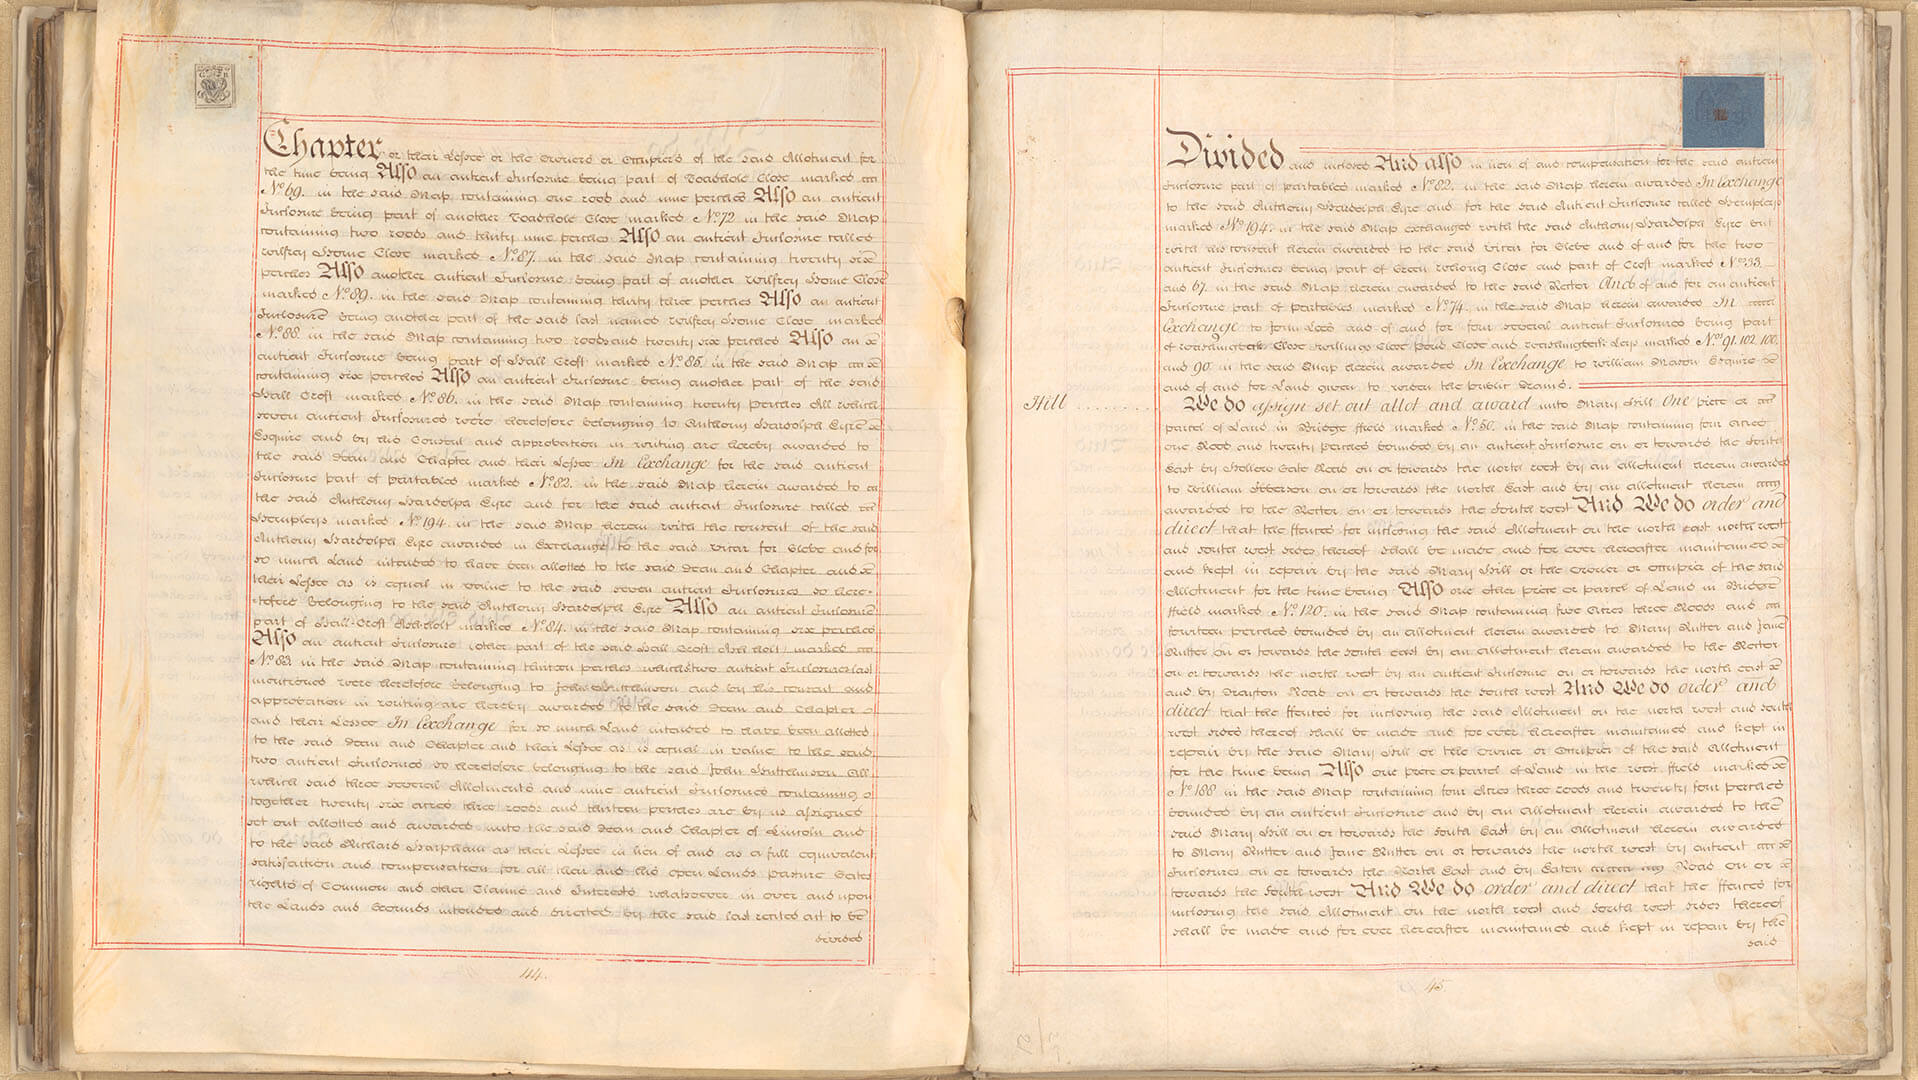 Chapter or their Lessee or the Owners or Occupiers of the said Allotment for
the time being Also an antient Inclosure being part of Toadhole Close marked
No. 69. in the said Map containing one rood and nine perches Also an antient
Inclosure being part of another Toadhole Close marked No. 72 in the said Map
containing two roods and thirty nine perches Also an antient Inclosure called
Wilfrey Home Close marked No. 87. in the said Map containing twenty six
perches Also another antient Inclosure being part of another Wilfrey Home Close
marked No. 89. in the said Map containing thirty three perches Also an antient
Inclosure being another part of the said last named Wilfrey Home Close marked
No. 88. in the said Map containing two roods and twenty six perches Also an
antient Inclosure being part of Hall Croft marked No. 85. in the said Map
containing six perches Also an antient Inclosure being another part of the said
Hall Croft marked No. 86. in the said Map containing twenty perches All which
seven antient Inclosures were heretofore belonging to Anthony Hardolph Eyre
Esquire and by his Consent and approbation in writing are hereby awarded to
the said Dean and Chapter and their Lessee In Exchange for the said antient
Inclosure part of Partables marked No. 82. in the said Map herein awarded to
the said Anthony Hardolph Eyre and for the said antient Inclosure called
Hempleys marked No. 194. in the said Map herein with the consent of the said
Anthony Hardolph Eyre awarded in Exchange to the said Vicar for Glebe and for
so much Land intended to have been allotted to the said Dean and Chapter and
their Lessee as is equal in value to the said seven antient Inclosures so here-
-tofore belonging to the said Anthony Hardolph Eyre Also an antient Inclosure
part of Hall-Croft Ash-holt marked No. 84. in the said Map containing six perches
Also an antient Inclosure other part of the said Hall Croft Ash holt marked
No. 83. in the said Map containing thirteen perches which two antient Inclosures last
mentioned were heretofore belonging to John Hutchinson and by his consent and
approbation in writing are hereby awarded to the said Dean and Chapter
and their Lessee In Exchange for so much Land intended to have been allotted
to the said Dean and Chapter and their Lessee as is equal in value to the said
two antient Inclosures so heretofore belonging to the said John Hutchinson All
which said three several Allotments and nine antient Inclosures containing
together twenty six acres three roods and thirteen perches are by us assigned
set out allotted and awarded unto the said Dean and Chapter of Lincoln and
to the said Richard Harpham as their Lessee in lieu of and as a full equivalent
satisfaction and compensation for all their and his open Lands Pasture Gates
rights of Common and other Claims and Interests whatsoever in over and upon
the Lands and Grounds intended and directed by the said last recited act to be
divided
44.
Divided and inclosed And also in lieu of and compensation for the said antient
Inclosure part of partables marked No. 82. in the said Map herein awarded In Exchange
to the said Anthony Hardolph Eyre and for the said Antient Inclosure called Hempleys
marked No. 194. in the said Map exchanged with the said Anthony Hardolph Eyre but
with his consent herein awarded to the said Vicar for Glebe and of and for the two
antient Inclosures being part of Green Close and part of Croft marked No. 33.
and 67. in the said Map herein awarded to the said Rector And of and for an antient
Inclosure part of Partables marked No. 74. in the said Map herein awarded In
Exchange to John Lee and of and for four several antient Inclosures being part
of Washingbeck Close Hollings Close Pond Close and Washingbeck Leys marked Nos. 91. 102. 100.
and 90. in the said Map herein awarded In Exchange to William Mason Esquire
and of and for Land given to widen the public Drains.
Hill
We do assign set out allot and award unto Mary Hill One piece or
parcel of Land in Bridge ffield marked No. 50. in the said Map containing four acres
one Rood and twenty perches bounded by an antient Inclosure on or towards the South
East by Hollow Gate Road on or towards the north west by an allotment herein awarded
to William on or towards the north East and by an allotment herein
awarded to the Rector on or towards the South west And We do order and
direct that the ffences for inclosing the said Allotment on the north east north west
and south west sides thereof shall be made and for ever hereafter maintained
and kept in repair by the said Mary Hill or the Owner or occupier of the said
Allotment for the time being Also one other piece or parcel of Land in Bridge
ffield marked No. 120. in the said Map containing five Acres three Roods and
fourteen perches bounded by an allotment herein awarded to Mary Rutter and Jane
Rutter on or towards the South east by an allotment herein awarded to the Rector
on or towards the north west by an antient Inclosure on or towards the north east
and by Drayton Road on or towards the South west And We do order and
direct that the ffences for inclosing the said Allotment on the north west and south
west sides thereof shall be made and for ever hereafter maintained and kept in
repair by the said Mary Hill or the Owner or Occupier of the said Allotment
for the time being Also one piece or parcel of Land in the West ffield marked
No. 188 in the said Map containing four Acres three roods and twenty four perches
bounded by an antient Inclosure and by an allotment herein awarded to the
said Mary Hill on or towards the South East by an allotment herein awarded
to Mary Rutter and Jane Rutter on or towards the north west by antient
Inclosures on or towards the North East and by Eaton Road on or
towards the South west And We do order and direct that the ffences for
inclosing the said Allotment on the north west and south west sides thereof
shall be made and for ever hereafter maintained and kept in repair by the
said
45.